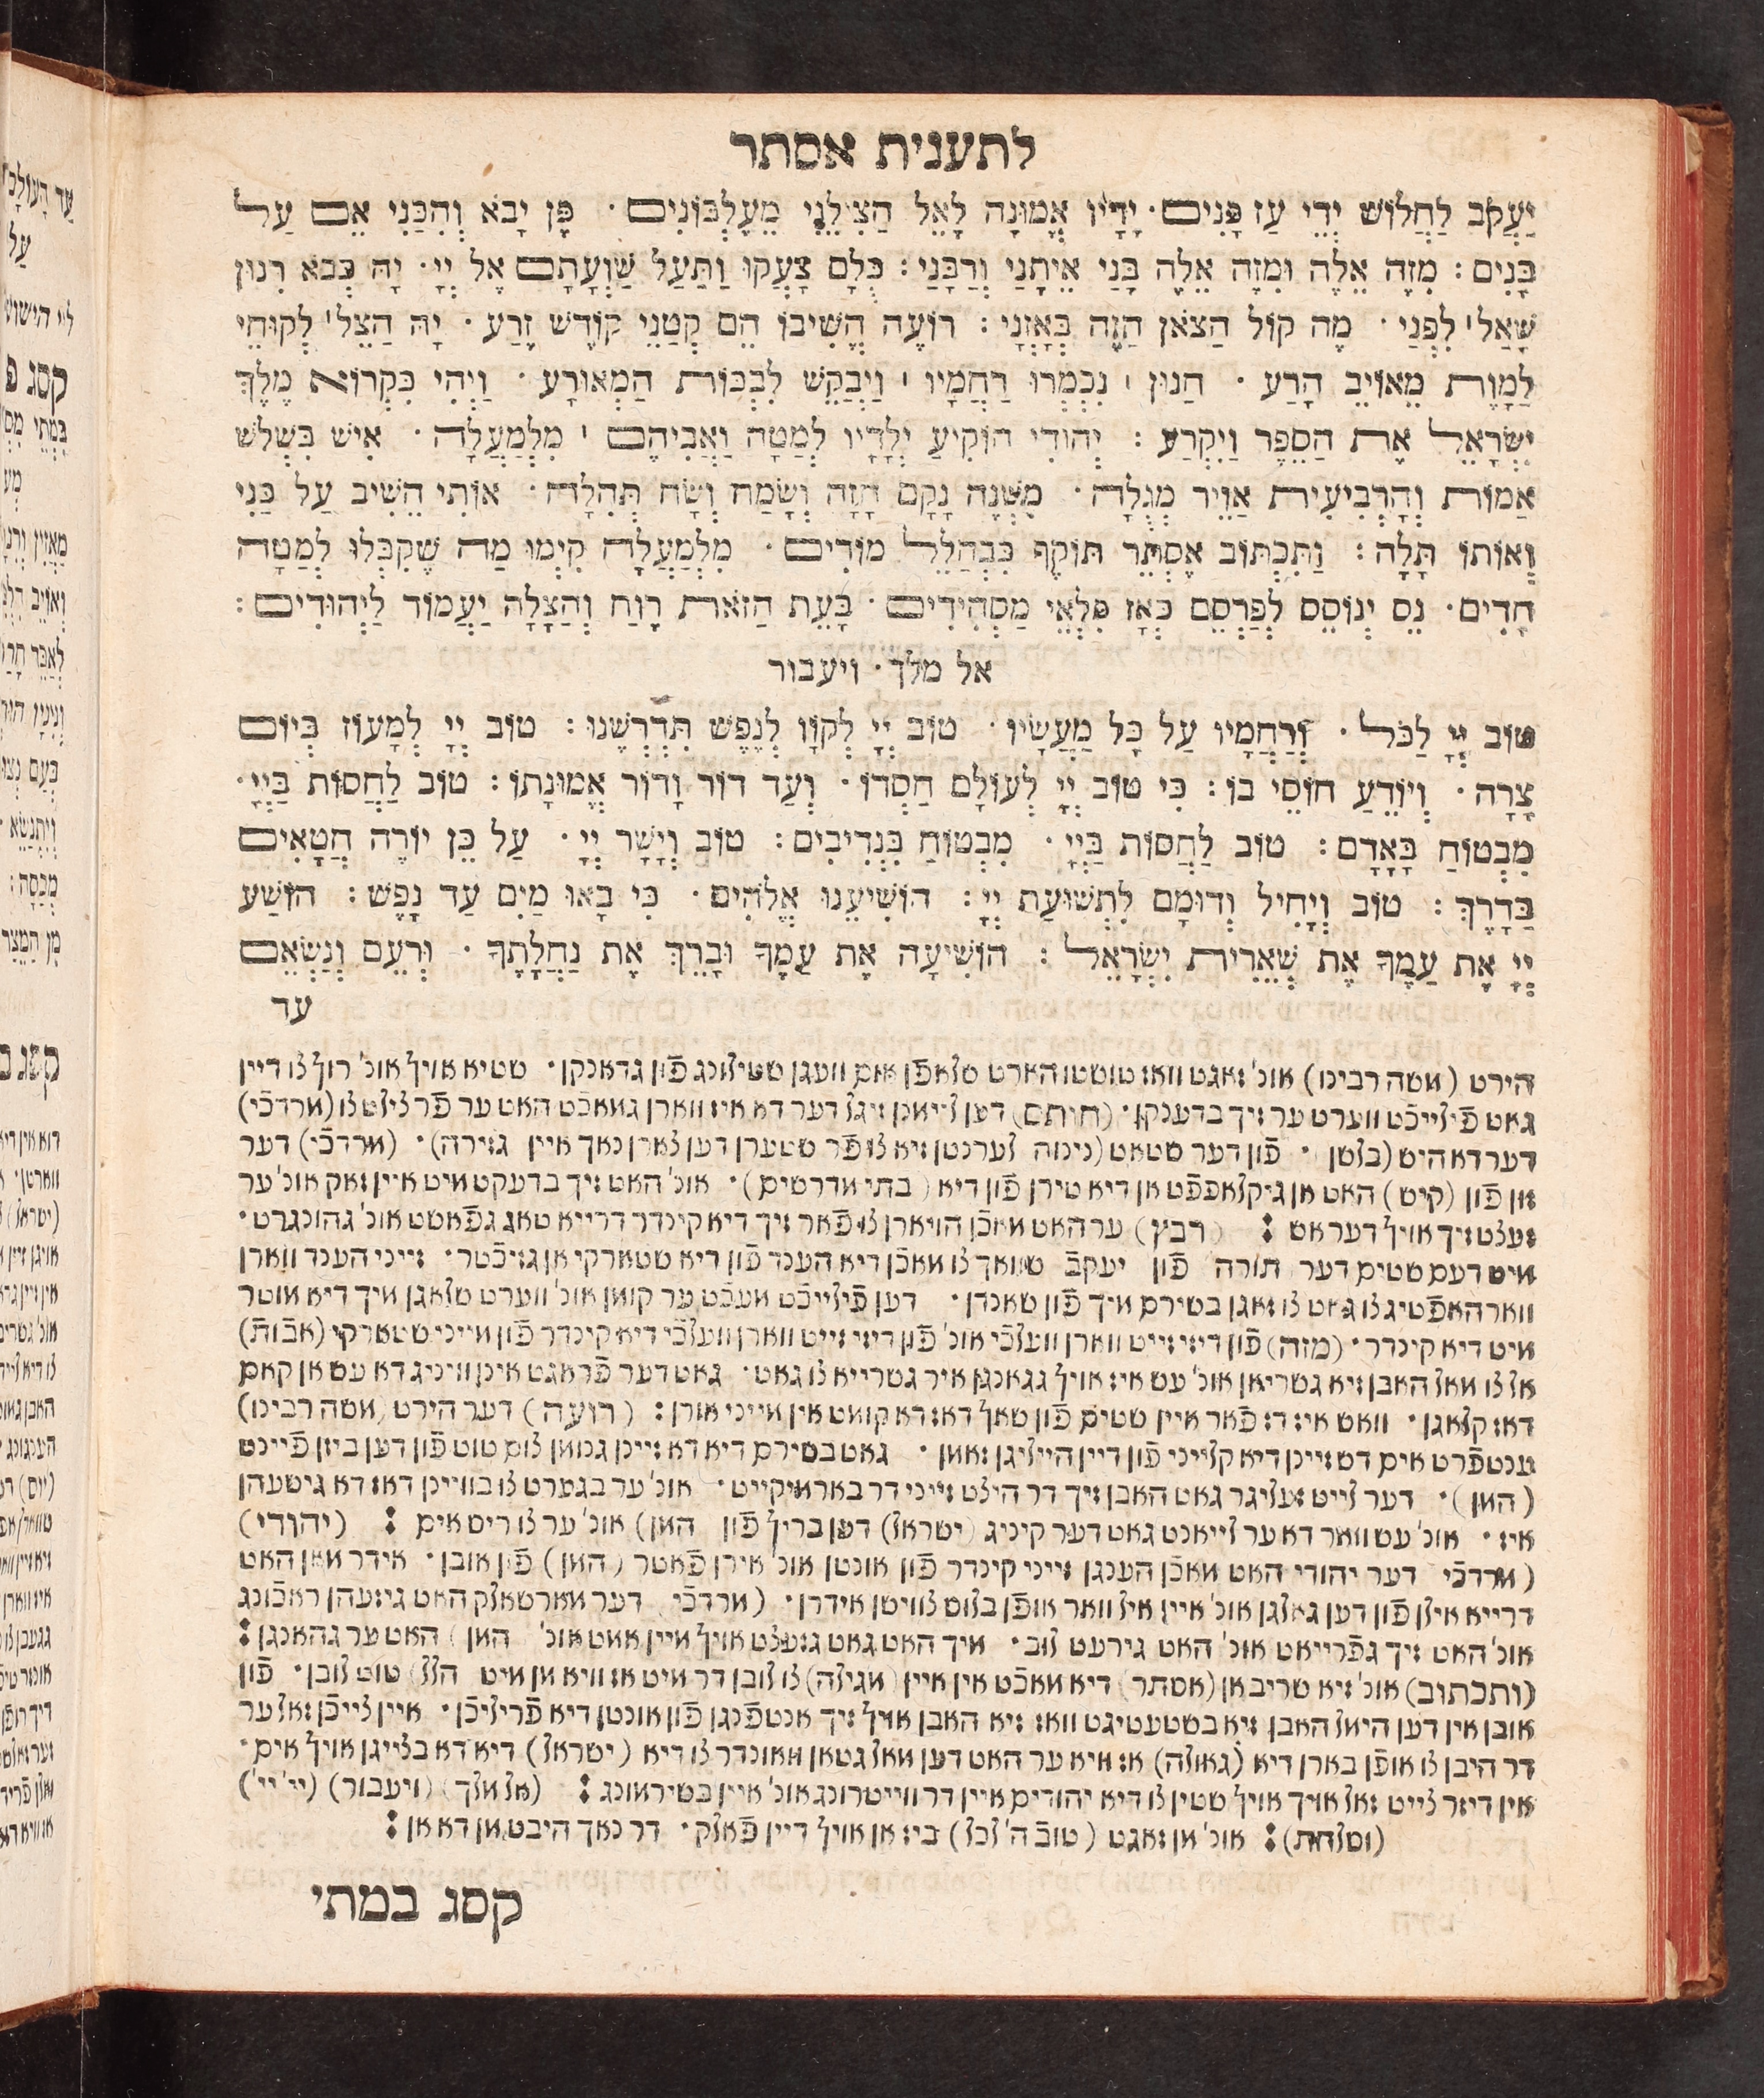 לתענית אסתר
יַעֲקֹב לַחֲלוֹשׁ יְדֵי עַז פָּנִים· יָדָיו אֱמוּנָה לָאֵל הַצִּילֵנִי מֵעֶלְבּוֹנִים · פֶּן יָבֹא וְהִכַּנִי אֵם עַל
בָּנִים : מִזֶה אֵלֶה וּמִזֶה אֵלֶה בָּנַי אֵיתָנַי וְרַבָּנַי : כֻּלָם צָעֲקוּ וַתַּעַל שַׁוְעָתָם אֶל יְיָ · יָהּ כְּבֹא רִנּוּן
שָׁאַל לִפְנַי · מֶה קוֹל הַצֹאן הַזֶה בְּאָזְנָי : רוֹעֶה הֱשִׁיבוֹ הֵם קְטַנֵּי קוֹדֶשׁ זֶרַע · יָהּ הַצֵל לְקוּחֵי
לַמָוֶת מֵאוֹיֵב הָרַע · חַנוּן נִכְמְרוּ רַחֲמָיו וַיְבַקֵשׁ לִבְכּוֹת הַמְאוֹרָע · וַיְהִי כִּקְרוֹא מֶלֶךְ
יִשְׂרָאֵל אֶת הַסֵפֶר וַיִקְרַע : יְהוּדִי הוֹקִיעַ יְלָדָיו לְמַטָה וַאֲבִיהֶם מִלְמַעְלָה · אִישׁ בִּשְׁלֹשׁ
אַמוֹת וְהָרְבִיעִית אֲוֵיר מְגֻלָה · מִשְׁנֶה נָקָם חָזָה וְשָׂמַח וְשָׂח תְּהִלָה · אוֹתִי הֵשִׁיב עַל כַּנִי
וְאוֹתוֹ תָּלָה : וַתִּכְתּוֹב אֶסְתֵּר תּוֹקֶף כִּבְהַלֵל מוֹדִים · מִלְמַעְלָה קִיְמוּ מַה שֶׁקִבְּלוּ לְמַטָה
חָדִים · נֵס יְנוֹסֵס לְפַרְסֵם כְּאָז פִּלְאֵי מַסְהִידִים · בָּעֵת הַזֹאת רֶוַח וְהַצָלָה יַעֲמוֹד לַיְהוּדִים :
אל מלך · ויעבור
טוֹב יְיָ לַכֹּל · וְרַחֲמָיו עַל כָּל מַעֲשָׂיו · טוֹב יְיָ לְקוֹוָו לְנֶפֶשׁ תִּדְרְשֶׁנּוּ : טוֹב יְיָ לְמָעוֹז בְּיוֹם
צָרָה · וְיוֹדֵעַ חוֹסֵי בוֹ : כִּי טוֹב יְיָ לְעוֹלָם חַסְדּוֹ · וְעַד דוֹר וָדוֹר אֱמוּנָתוֹ : טוֹב לַחֲסוֹת בַּיְיָ ·
מִבְּטוֹחַ בָּאָדָם : טוֹב לַחֲסוֹת בַּיְיָ · מִבְּטוֹחַ בִּנְדִיבִים : טוֹב וְיָשָׁר יְיָ · עַל כֵּן יוֹרֶה חַטָאִים
בַּדָרֶךְ : טוֹב וְיָחִיל וְדוּמָם לִתְשׁוּעַת יְיָ : הוֹשִׁיעֵנוּ אֱלֹהִים · כִּי בָאוּ מַיִם עַד נָפֶשׁ : הוֹשַׁע
יְיָ אֶת עַמְךָ אֶת שְׁאֵרִית יִשְׂרָאֵל : הוֹשִׁיעָה אֶת עַמֶךָ וּבָרֵךְ אֶת נַחֲלָתֶךָ · וּרְעֵם וְנַשְׂאֵם
עד
הירט (משה רבינו) אונ' זאגט וואז טוסטו הארט שלאפֿן אום וועגן שטילונג פֿון גדאנקן · שטיא אויף אונ' רוף צו דיין
גאט פֿילייכֿט ווערט ער זיך בדענקן · (חותם) דען ליימכן זיגל דער דא איז ווארן גמאכֿט האט ער פֿר זיגלט צו (מרדכי)
דער דא היס (בלשן · פֿון דער שטאט (נינוה לערכטן זיא צו פֿר שטערן דען צארן נאך איין גזירה) · (מרדכי) דער
זון פֿון (קיש) האט אן גיקלאפפֿט אן דיא טירן פֿון דיא (בתי מדרשים) · אונ' האט זיך בדעקט מיט איין זאק אונ' ער
זעצט זיך אויף דער אש : (רבץ) ער האט מאכֿן הויארן צו פֿאר זיך דיא קינדר דרייא טאג גפֿאשט אונ' גהונגרט ·
מיט דעם שטים דער תורה פֿון יעקבֿ שוואך צו מאכֿן דיא הענד פֿון דיא שטארקי אן גזיכֿטר · זייני הענד ווארן
ווארהאפֿטיג צו גאט צו זאגן בשירם מיך פֿון שאנדן · דען פֿילייכֿט מעכֿט ער קומן אונ' ווערט שלאגן מיך דיא מוטר
מיט דיא קינדר · (מזה) פֿון דיזי זייט ווארן וועלכֿי אונ' פֿון דיזי זייט ווארן וועלכֿי דיא קינדר פֿון מייני שטארקי (אבות)
אל צו מאל האבן זיא גשריאן אונ' עס איז אויף גגאנגן איר גשרייא צו גאט · גאט דער פֿראגט אינן וויניג דא עס אן קאם
דאז קלאגן · וואס איז דז פֿאר איין שטים פֿון שאף דאז דא קומט אין מייני אורן : (רועה) דער הירט (משה רבינו)
ענטפֿרט אים דש זיינן דיא קלייני פֿון דיין הייליגן זאמן · גאט בשירם דיא דא זיינן גנומן צום טוט פֿון דען ביזן פֿיינט
(המן) · דער לייט זעליגר גאט האבן זיך דר היצט זייני דר בארמיקייט · אונ' ער בגערט צו בוויינן דאז דא גישעהן
איז · אונ' עס וואר דא ער לייאנט גאט דער קיניג (ישראל) דען בריף פֿון המן) אונ' ער צו ריס אים : (יהודי)
(מרדכי דער יהודי האט מאכֿן הענגן זייני קינדר פֿון אונטן אונ' אירן פֿאטר (המן) פֿון אובן · אידר מאן האט
דרייא אילן פֿון דען גאלגן אונ' איין איל וואר אופֿן בלוס צווישן אידרן · (מרדכי דער מארשאלק האט גיזעהן ראכֿונג
אונ' האט זיך גפֿרייאט אונ' האט גירעט לוב · מיך האט גאט גזעצט אויף מיין אמט אונ' המן) האט ער גהאנגן :
(ותכתוב) אונ' זיא שריב אן (אסתר) דיא מאכֿט אין איין (מגילה) צו לובן דר מיט אזו וויא מן מיט הלל) טוט לובן · פֿון
אובן אין דען הימל האבן זיא בשטעטיגט וואז זיא האבן אויף זיך אנטפֿנגן פֿון אונטן דיא פֿריליכֿן · איין צייכֿן זאל ער
דר היבן צו אופֿן בארן דיא (גאולה) אז וויא ער האט דען מאל גטאן וואונדר צו דיא (ישראל) דיא דא בצייגן אויף אים ·
אין דיזר צייט זאל אויך אויף שטין צו דיא יהודים איין דר ווייטרונג אונ' איין בשירמונג : (אל מלך) (ויעבור) (יי' יי')
(וסלחת) : אונ' מן זאגט (טוב ה' לכל) ביז אן אויף דיין פֿאלק · דר נאך היבט מן דא אן :
קסג במתי